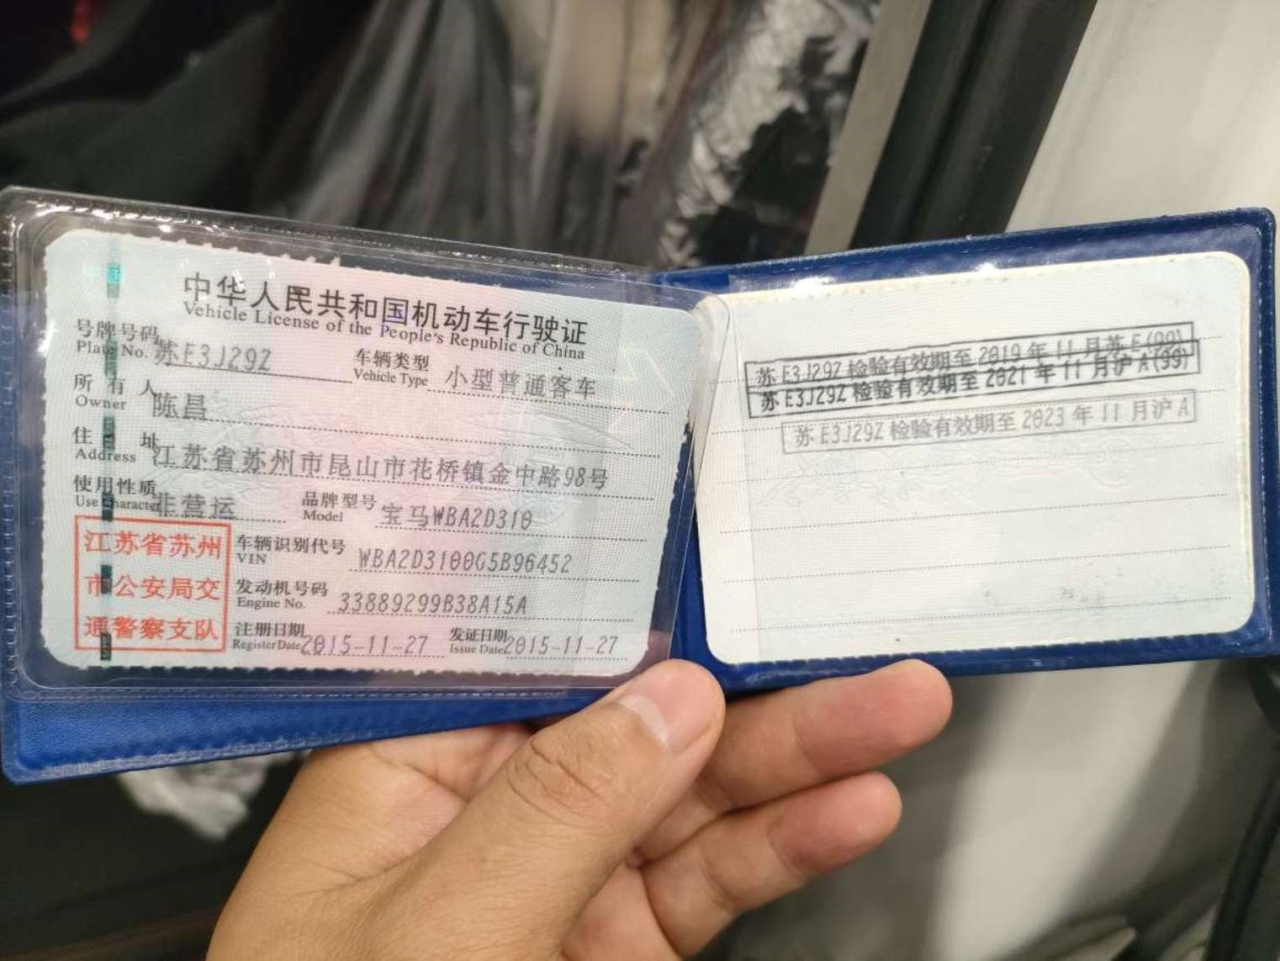 中华人民共和国机动车行驶证
Vehicle License of the People's Republic of China
号牌号码 苏E3J29Z 车辆类型 小型普通客车
Plate No. Vehicle Type
所有人 陈昌
Owner
住址 江苏省苏州市昆山市花桥镇金中路98号
Address
使用性质 非营运 品牌型号 宝马WBA2D310
Use Character Model
江苏省苏州
市公安局交
通警察支队
车辆识别代号 WBA2D3100G5B96452
VIN
发动机号码 33889299B38A15A
Engine No.
注册日期 2015-11-27 发证日期 2015-11-27
Register Date Issue Date
苏E3J29Z检验有效期至2019年11月苏E(99)
苏E3J29Z检验有效期至2021年11月沪A(99)
苏E3J29Z检验有效期至2023年11月沪A